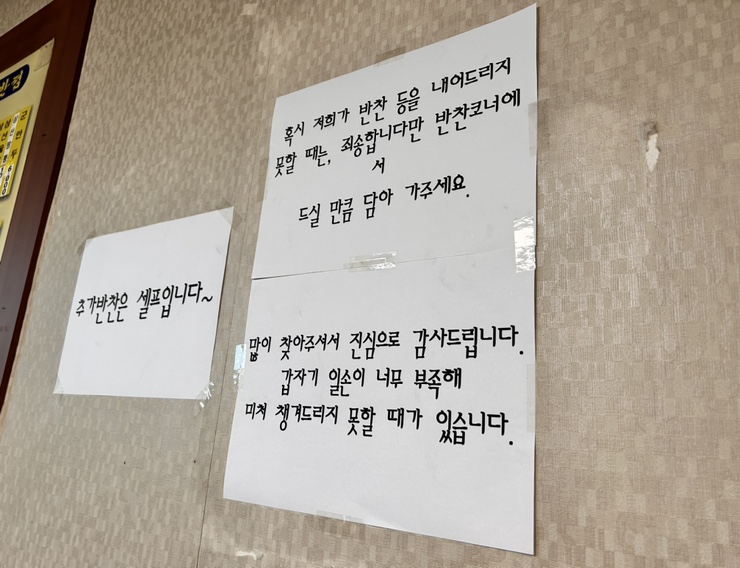 추가반찬은 셀프입니다~
혹시 저희가 반찬 등을 내어드리지
못할 때는, 죄송합니다만 반찬코너에
서
드실 만큼 담아 가주세요.
많이 찾아주셔서 진심으로 감사드립니다.
갑자기 일손이 너무 부족해
미쳐 챙겨드리지 못할 때가 있습니다.